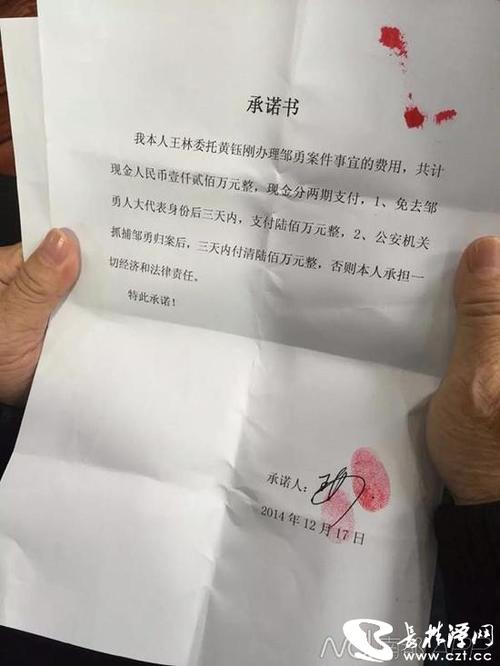 承诺书
我本人王林委托黄钰刚办理邹勇案件事宜的费用，共计
现金人民币壹仟贰佰万元整，现金分两期支付，1、免去邹
勇人大代表身份后三天内，支付陆佰万元整，2、公安机关
抓捕邹勇归案后，三天内付清陆佰万元整，否则本人承担一
切经济和法律责任。
特此承诺！
承诺人：
2014年12月17日
长株潭网
www.czt.cc